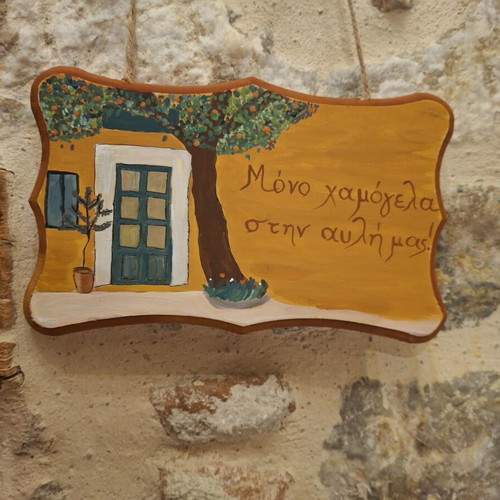 Μόνο χαμόγελα
στην αυλή μας!